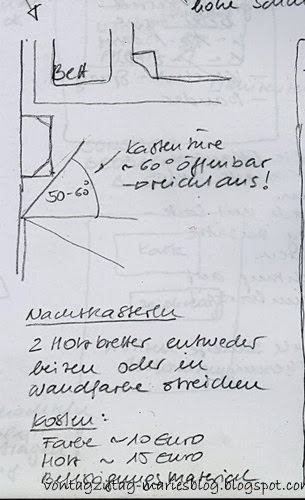 hohe
Bett
Kastentüre
~ 60° öffenbar
→ reicht aus!
50-60°
Nachtkasterln
2 Holzbretter entweder
beizen oder in
Wandfarbe streichen
Kosten:
Farbe ~ 10 Euro
Holz ~ 15 Euro
Befestigungsmaterial
vontagzutag-mariesblog.blogspot.com